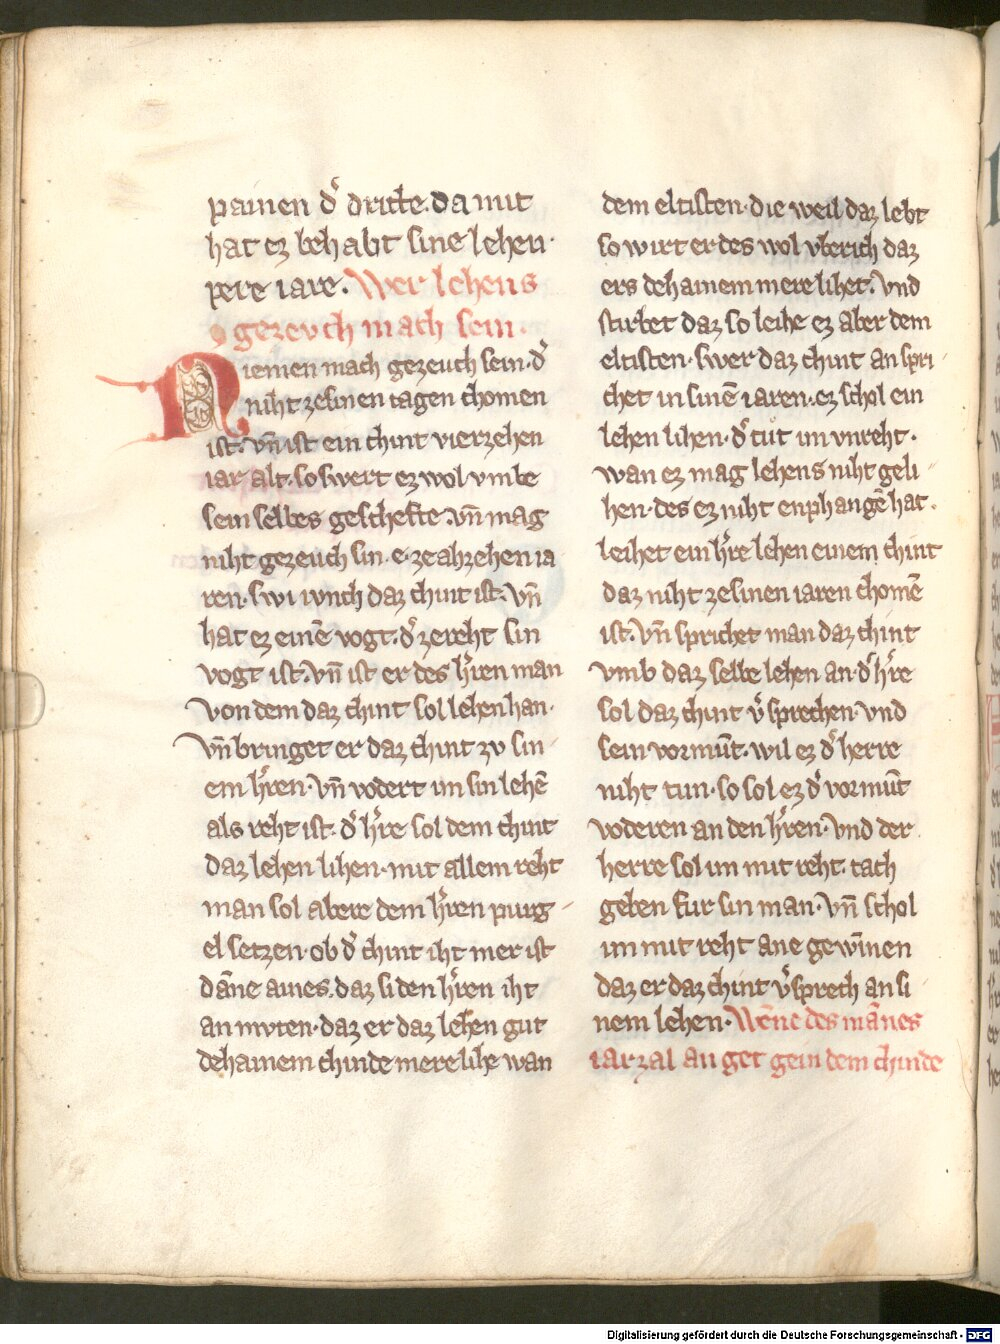 painen dͬ dritte. da mit
hat ez behabt sine lehen·
pere iare. Wer lehens
gezevch mach sein.
Niemen mach gezeuch sein· dͬ
niht ze sinen tagen chomen
ist. vn̄ ist ein chint vierzehen
iar alt. so swert ez wol vmbe
sein selbes geschefte. vn̄ mag
niht gezeuch sin· e· ze ahzehen ia
ren· swi iunch daz chint ist. vn̄
hat ez einē vogt. dͬ ze reht sin
vogt ist. vn̄ ist er des hͬren man
von dem daz chint sol lehen han·
vn̄ bringet er daz chint zv sin
em hͬren· vn̄ vodert im sin lehē
als reht ist· dͬ hͬre sol dem chint
daz lehen lihen· mit allem reht
man sol abere dem hͬren purg
el setzen· ob dͬ chint iht mer ist
dān̄e aines. daz si den hͬren iht
an mvten· daz er daz lehen gut
dehainem chinde mere lihe wan
dem eltisten· die weil daz lebt
so wirt er des wol vberich daz
ers dehainem mere lihet. vnd
stirbet daz so leihe ez aber dem
eltisten· swer daz chint an spri
chet in sinē iaren· ez schol ein
lehen lihen· dͬ tut im vnreht·
wan ez mag lehens niht geli
hen· des ez niht enphangē hat·
leihet ein hͬre lehen einem chint
daz niht ze sinen iaren chomē
ist. vn̄ sprichet man daz chint
vmb daz selbe lehen an· dͬ hͬre
sol daz chint vͬsprechen· vnd
sein vormūt. wil ez dͬ herre
niht tun· so sol ez dͬ vormūt
voderen an den hͬren· vnd der
herre sol im mit reht. tach
geben fur sin man· vn̄ schol
im mit reht ane gewin̄en
daz er daz chint vͬsprech an si
nem lehen· Wēne des mānes
iarzal an get gein dem chinde
Digitalisierung gefördert durch die Deutsche Forschungsgemeinschaft - DFG